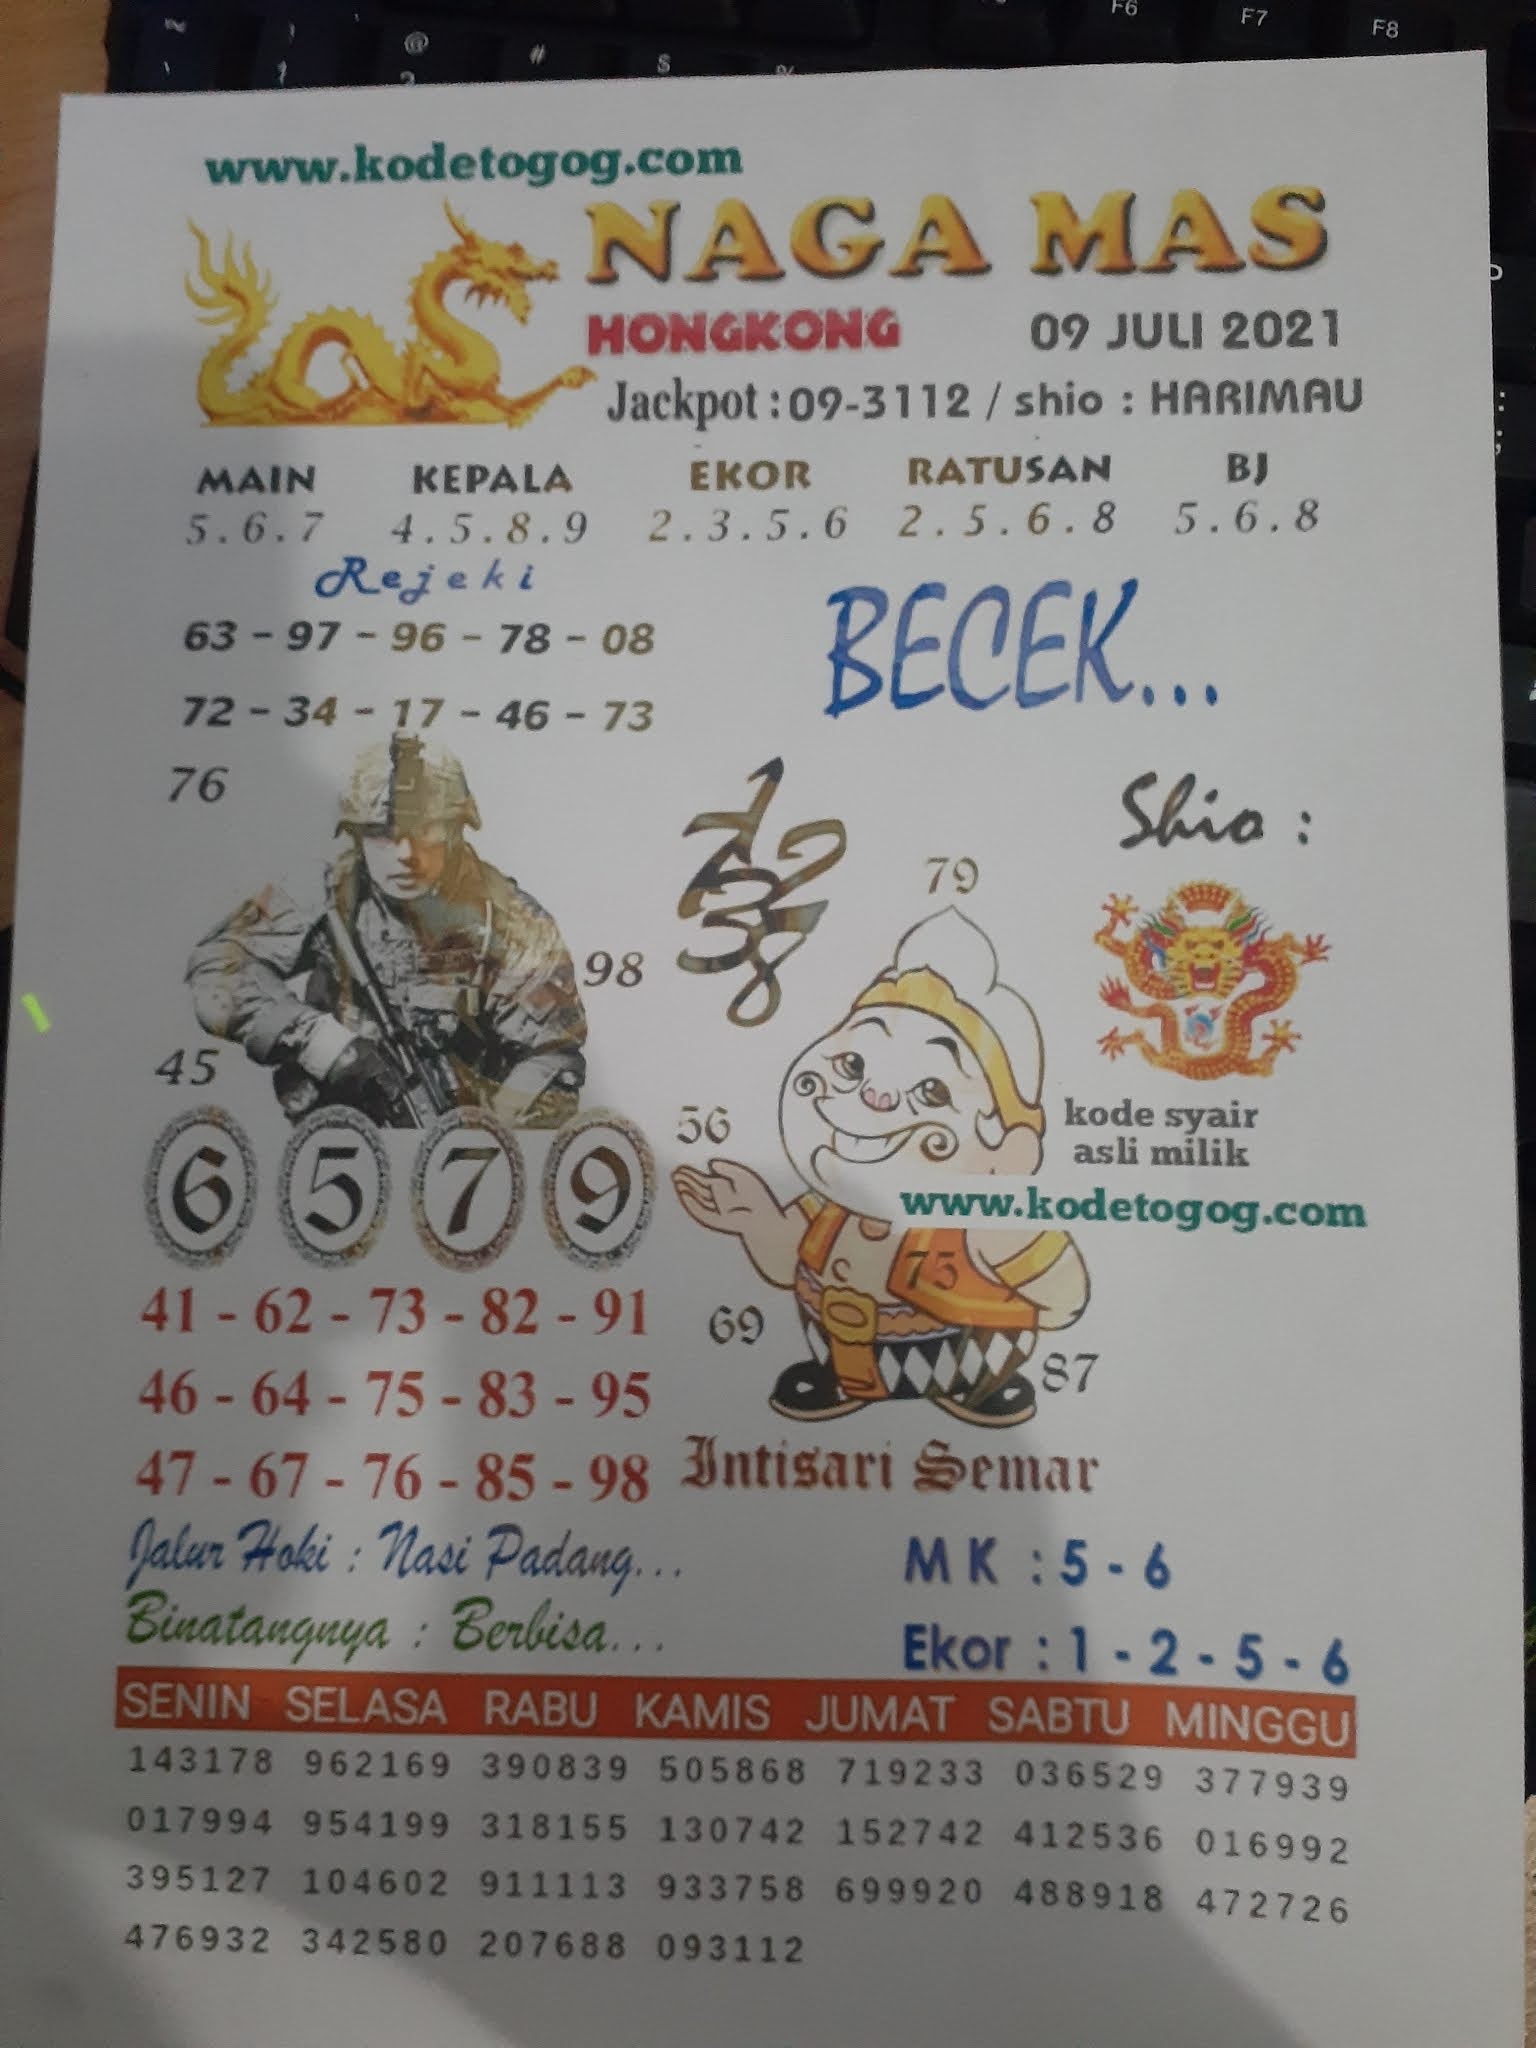 F6 F7 F8
www.kodetogog.com
NAGA MAS
HONGKONG 09 JULI 2021
Jackpot : 09-3112 / shio : HARIMAU
MAIN KEPALA EKOR RATUSAN BJ
5 . 6 . 7 4 . 5 . 8 . 9 2 . 3 . 5 . 6 2 . 5 . 6 . 8 5 . 6 . 8
Rejeki
63 - 97 - 96 - 78 - 08
72 - 34 - 17 - 46 - 73
BECEK...
76
Shio :
79
98
45
56
kode syair
asli milik
www.kodetogog.com
6 5 7 9
75
41 - 62 - 73 - 82 - 91
69
46 - 64 - 75 - 83 - 95
87
47 - 67 - 76 - 85 - 98
Intisari Semar
Jalur Hoki : Nasi Padang...
M K : 5 - 6
Binatangnya : Berbisa...
Ekor : 1 - 2 - 5 - 6
SENIN SELASA RABU KAMIS JUMAT SABTU MINGGU
143178 962169 390839 505868 719233 036529 377939
017994 954199 318155 130742 152742 412536 016992
395127 104602 911113 933758 699920 488918 472726
476932 342580 207688 093112